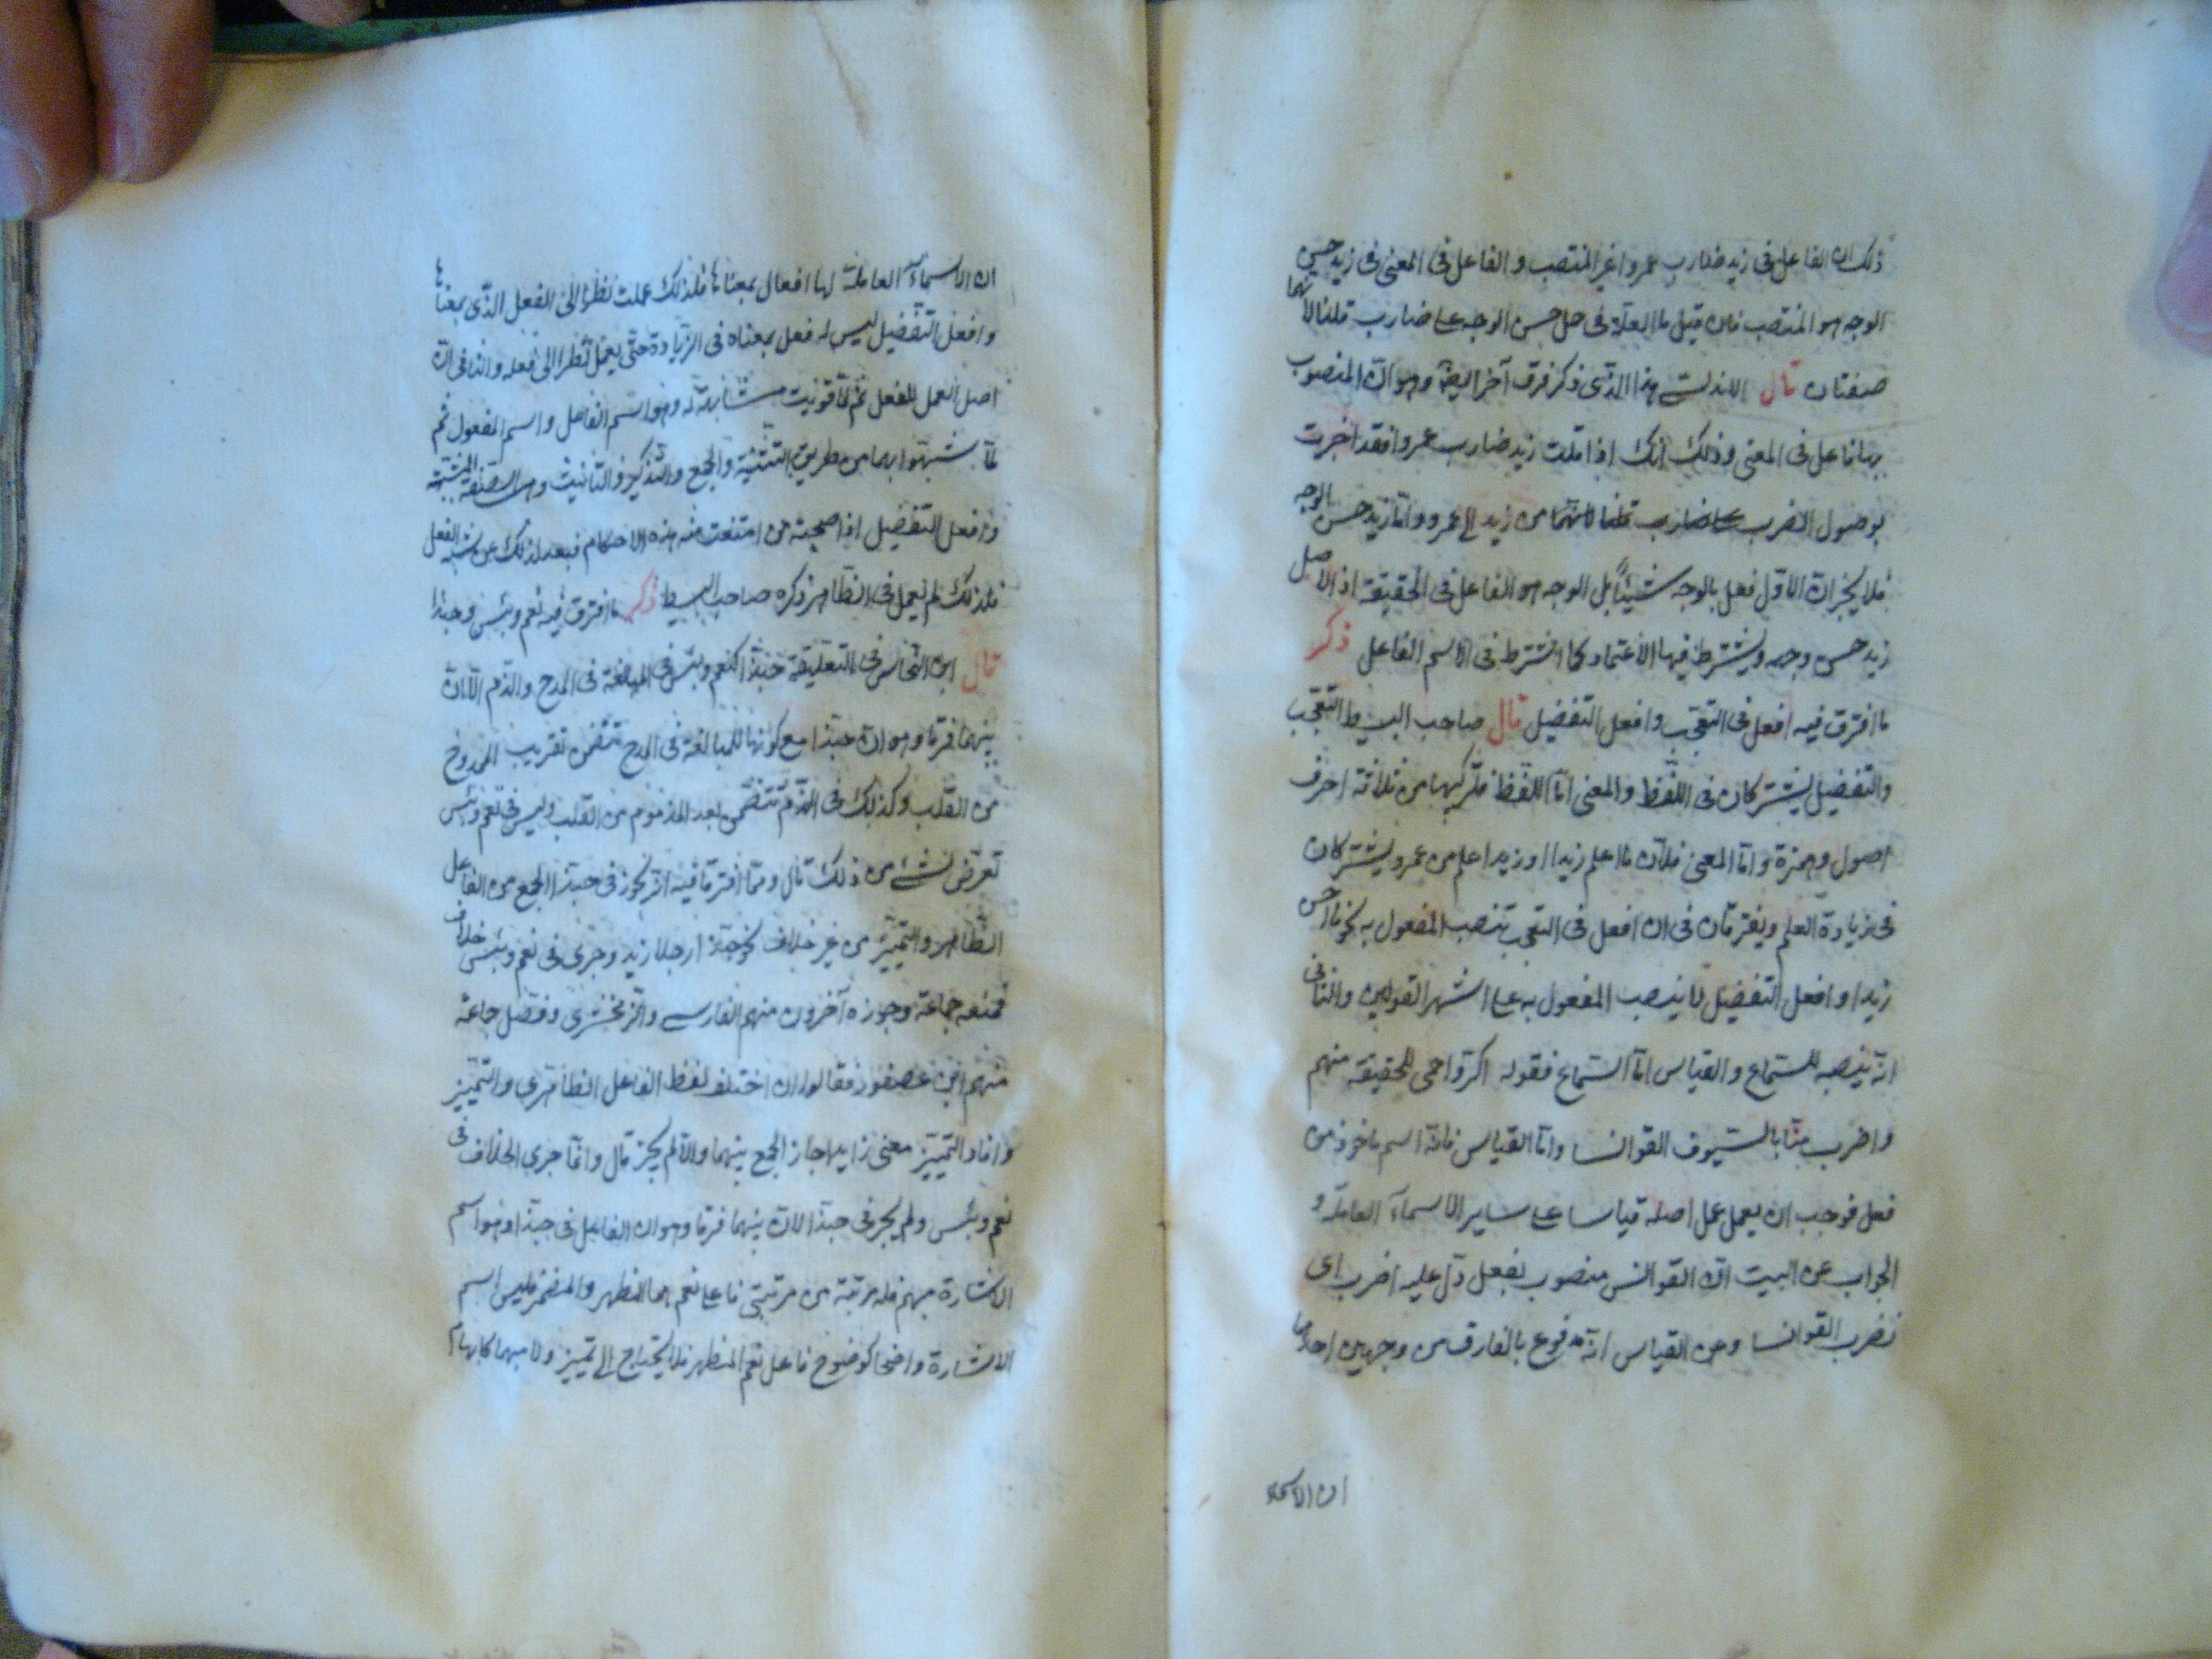 ذلك ان الفاعل فى زيد ضارب عمروا غير المنتصب والفاعل فى المعنى فى زيد حسن
الوجه هو المنتصب فان قيل ما العلة فى حمل حسن الوجه على ضارب قلنا لانهما
صفتان قال الاندلسى هذا الذى ذكر فرق آخر ايضا وهو ان المنصوب
بها فاعل فى المعنى وذلك انك اذا قلت زيد ضارب عمروا فقد اخبرت
بوصول الضرب من زيد الى عمرو واما زيد حسن الوجه
فلا يخبر ان الاول فعل بالوجه شيئا بل الوجه هو الفاعل فى الحقيقة اذ الاصل
زيد حسن وجهه ويشترط فيها الاعتماد كما اشترط فى الاسم الفاعل ذكر
ما افترق فيه افعل فى التعجب وافعل التفضيل قال صاحب البسيط التعجب
والتفضيل يشتركان فى اللفظ والمعنى اما اللفظ فتركبهما من ثلاثة احرف
اصول وهمزة واما المعنى فلان ما اعلم زيدا وزيد اعلم من عمرو يشتركان
فى زيادة العلم ويفترقان فى ان افعل فى التعجب تنصب المفعول به نحو ما احسن
زيدا وافعل التفضيل لا ينصب المفعول به على اشهر القولين والثانى
انه ينصبه للسماع والقياس اما السماع فقوله اكر واحمى للحقيقة منهم
واضرب منا بالسيوف القوانسا واما القياس فانه اسم ماخوذ من
فعل فوجب ان يعمل عمل اصله قياسا على ساير الاسماء العاملة و
الجواب عن البيت ان القوانس منصوب بفعل دل عليه اضرب اى
نضرب القوانسا وعن القياس انه مدفوع بالفارق من وجهين احدهما
ان الاسماء
ان الاسماء العاملة لها افعال بمعناها فلذلك عملت نظرا الى الفعل الذى بمعناها
وافعل التفضيل ليس له فعل بمعناه فى الزيادة حتى يعمل نظرا الى فعله والثانى ان
اصل العمل للفعل ثم لما قويت مشابهته له وهو اسم الفاعل واسم المفعول ثم
لما شبهوا بهما من طريق التثنية والجمع والتذكير والتانيث وهى الصفة المشبهة
وافعل التفضيل اذا صحبته من امتنعت منه هذه الاحكام فبعد لذلك عن شبه الفعل
فلذلك لم يعمل فى الظاهر ذكره صاحب البسيط ذكر ما افترق فيه نعم وبئس وحبذا
قال ابن النحاس فى التعليقة حبذا كنعم وبئس فى المبالغة فى المدح والذم الا ان
بينهما فرقا وهو ان حبذا مع كونها للمبالغة فى المدح تتضمن تقريب الممدوح
من القلب وكذلك فى الذم تتضمن بعد المذموم من القلب وليس فى نعم وبئس
تعرض لشىء من ذلك قال ومما افترقا فيه انه يجوز فى حبذا الجمع من الفاعل
الظاهر والتمييز من غير خلاف نحو حبذا رجلا زيد وجرى فى نعم وبئس خلاف
فمنعه جماعة وجوزه آخرون منهم الفارسى والزمخشرى وفصل جماعة
منهم ابن عصفور فقالوا ان اختلف لفظ الفاعل الظاهرى والتمييز
وافاد التمييز معنى زايدا جاز الجمع بينهما والا لم يجز قال وانما جرى الخلاف فى
نعم وبئس ولم يجر فى حبذا لان بينهما فرقا وهو ان الفاعل فى حبذا وهو اسم
الاشارة مبهم فله مرتبة من مرتبتى فاعل نعم هما المظهر والمضمر فليس اسم
الاشارة واضحا كوضوح فاعل نعم المظهر فلا يحتاج الى تمييز ولا مبهما كابهام